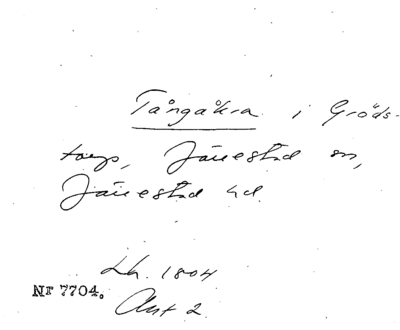 Tångåkra i Gröds-
torp, Järrestad sn,
Järrestad hd.
Lh. 1804
Nr 7704.
Akt 2